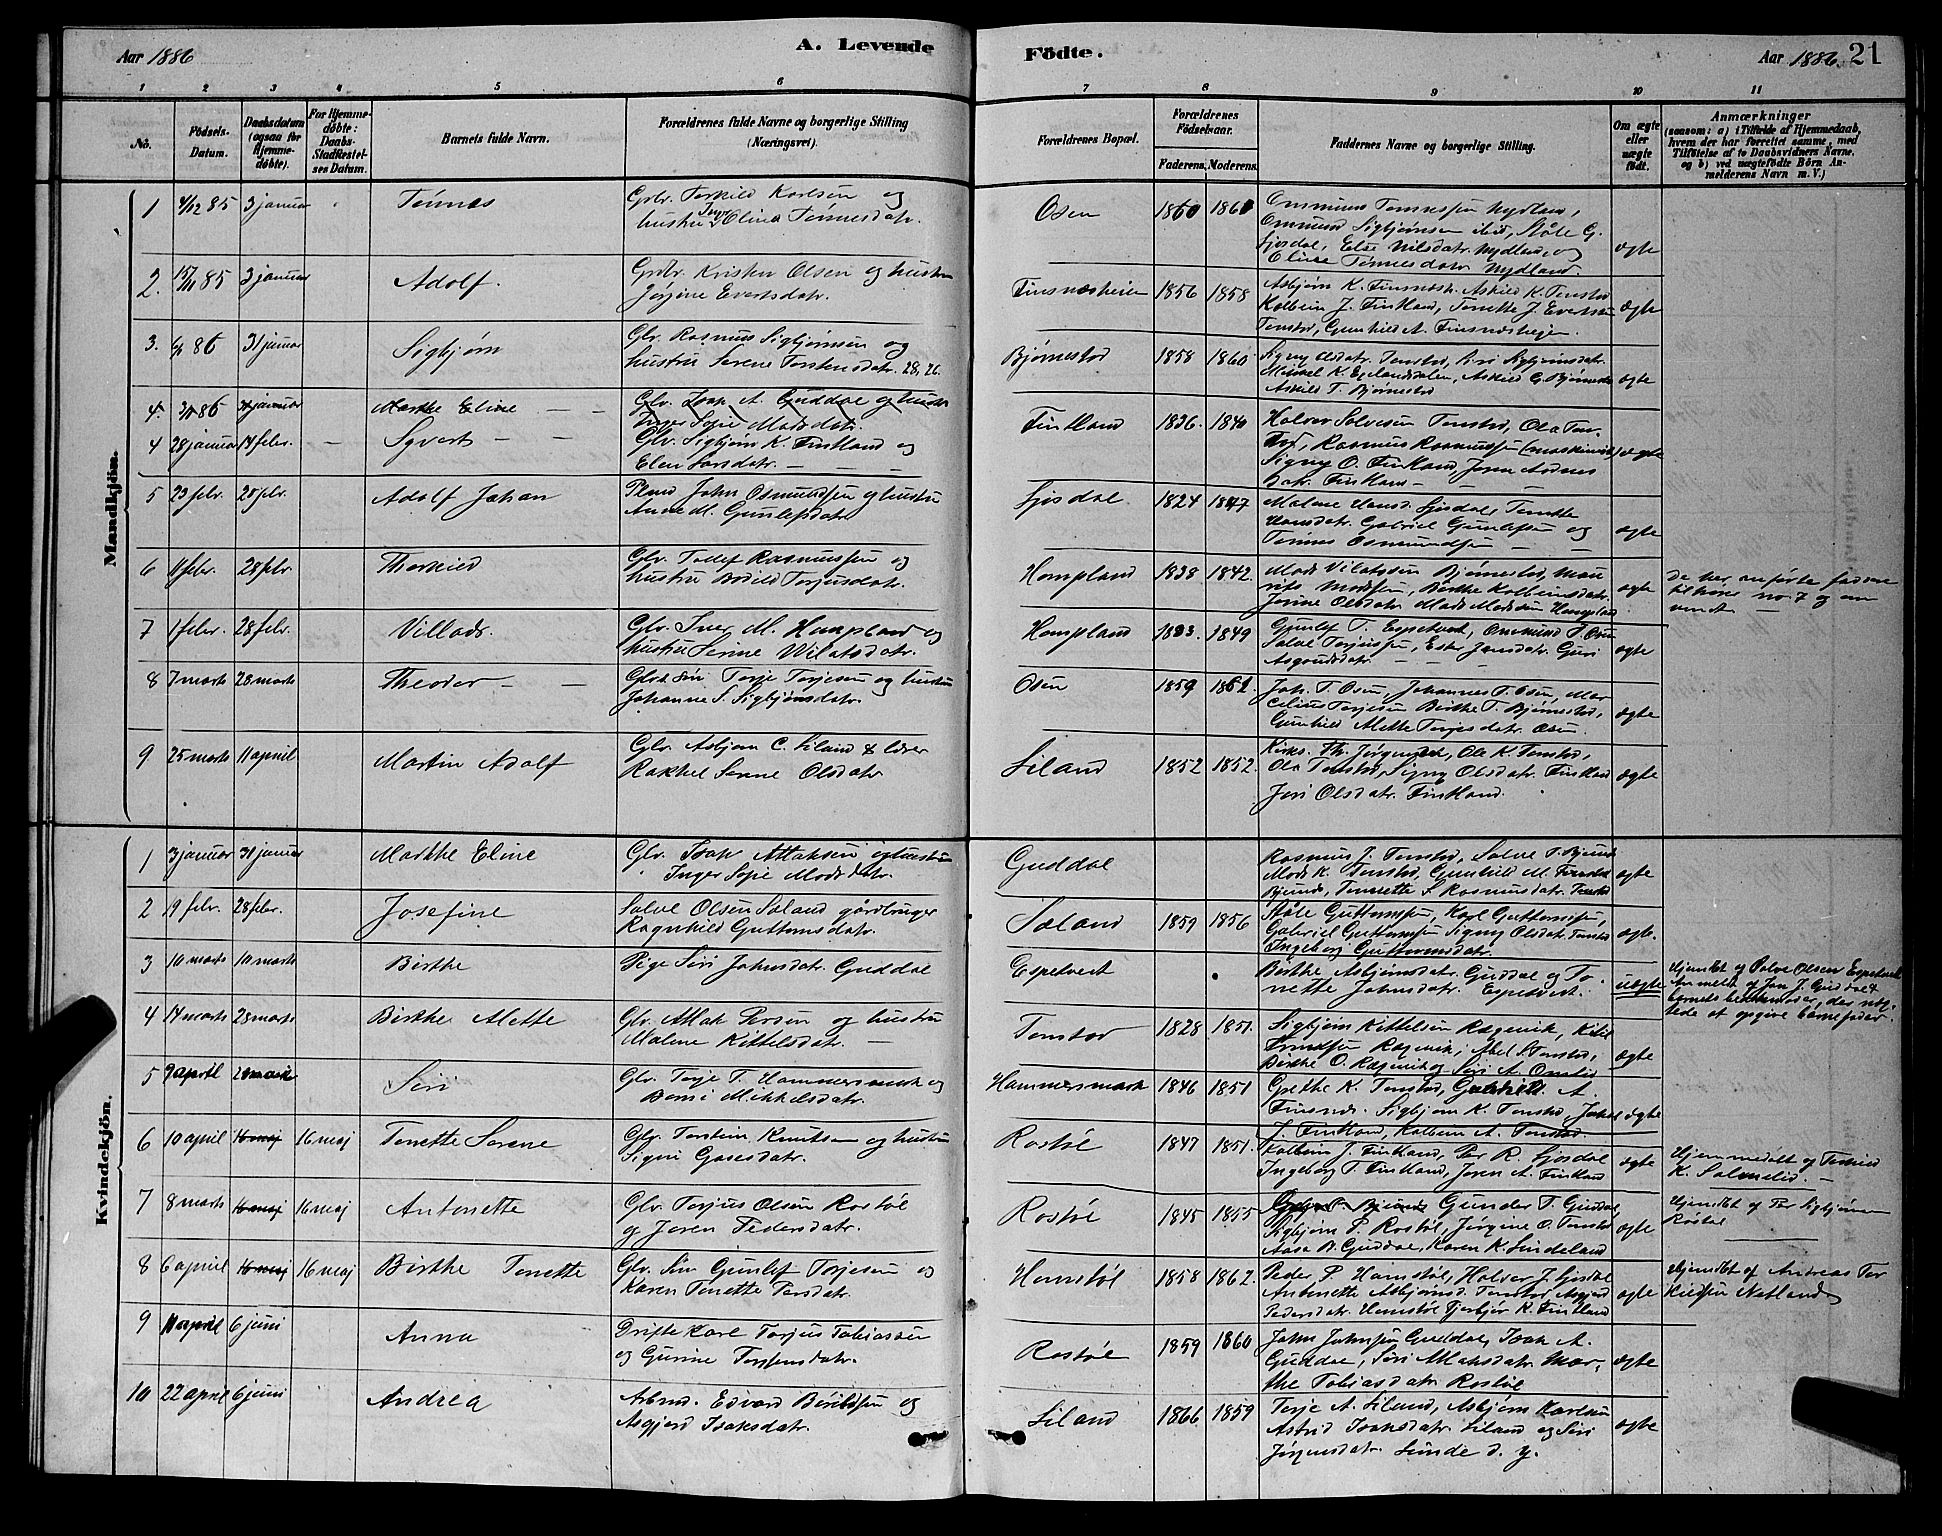 Aar 1886
A. Levende
Födte.
Aar 1886.
21
1 2 3 4 5 6 7 8 9 10 11
No.
Födsels-Datum.
Daabsdatum (ogsaa for Hjemme-döbte).
For Hjemme-döbte: Daabs-Stadfæstel-ses Datum.
Barnets fulde Navn.
Forældrenes fulde Navne og borgerlige Stilling (Næringsvei).
Forældrenes Bopæl.
Forældrenes Födselsaar.
Faderens. Moderens.
Faddernes Navne og borgerlige Stilling.
Om ægte eller uægte født.
Anmærkninger
(saasom: a) i Tilfælde af Hjemmedaab, hvem der har forrettet samme, med Tilföielse af to Daabsvidners Navne, og b) ved uægtefödte Börn An-melderens Navn m. V.)
Mandkjön.
1 4/12 85 3 januar Tønnes
Grbr. Torkild Karlsen og
hustru Inger Elina Tønnesdatr.
Osen 1860 1861
Ommund Tønnessen Nydland,
Ommund Sigbjørnsen ibid, Ståle G.
Sjosdal, Else Nilsdatr. Nydland, og
Eline Tønnesdatr Nydland.
ægte
2. 15/11 85 3 januar Adolf.
Grbr. Kristen Olsen og hustru
Jørgine Evertsdatr.
Finsnæsheien 1856 1858
Asbjørn K. Finsnæsh. Askild K. Tonstad
Kolbein J. Fintland, Tonette J. Evertsen
Tonstad, Gunhild A. Finsnæsheien.
ægte
3. 86 31 januar Sigbjørn
Glv. Rasmus Sigbjørnsen og
hustru Serene Torstensdatr. 28, 26.
Bjørnestad 1858 1860
Signy Olsdatr. Tonstad, Siri Sigbjørnsdatr.
Mikkel K. Egelandsdalen, Askild G. Bjørnestad
Askild T. Bjørnestad
ægte
4. 3/1 86 31 januar Marthe Eline
Glv. Isak A. Guddal og hustru
Inger Sofie Madsdatr.
4 28 januar 14 febr. Syvert
Glv. Sigbjørn K. Fintland og
Elen Larsdatr.
Fintland 1836. 1840
Halvor Salvesen Tonstad, Ola Ton-
stad, Rasmus Rasmussen
Signy O. Fintland, Joren Aadnes
datr. Fintland
ægte
5 23 febr. 28 febr. Adolf Johan
Plmd John Osmundsen og hustru
Anne M. Gunlefsdatr
Sjosdal 1824 1847
Malene Hansd. Sjosdal, Tonette
Hansdatr. Gabriel Gunlefsen og
Tønnes Osmundsen
ægte
6 febr. 28 febr. Thorkild
Glv. Tollef Rasmussen og
hustru Bodild Torjusdatr.
Hompland 1838 1842.
Mads Vilatssen Bjørnestad, Mau
rits Madsen, Birthe Kolbeinsdatr.
Jorine Olsdatr Mads Madssen Hompland
ægte
De her anførte faddere
tilhører no. 7 og om
vendt
7 1 febr. 28 febr. Villads.
Glv. Iver M. Hompland og
hustru Serine Vilatsdatr.
Hompland 1833. 1849
Gunlef T. Espetvedt, Ommund T. Osen
Salve Torjussen, Ester Jonsdatr. Guri
Asgoutsdatr.
ægte
8 7 marts 28 marts Theodor
Glvs Søn Torje Torjesen og hustru
Johanne S. Sigbjørnsdatr.
Osen 1859 1862
Joh. T. Osen, Johannes T. Osen, Mar
celius Torjesen Birthe T. Bjørnestad,
Gunhild Alette Torjesdatr Osen.
ægte
9 25 marts 11 april Martin Adolf
Glv. Asbjørn C. Liland & lærer
Rakhel Serine Olsdatr
Liland 1852 1852.
Kirks. Th. Jørgensdat, Ole K. Tonstad,
Ola Tonstad, Signy Olsdatr. Fintland
Jori Olsdatr. Fintland.
ægte
Kvindekjön.
1 3 januar 31 januar Marthe Eline
Glv. Isak Atlaksen og hustru
Inger Sofie Madsdatr.
Guddal
Rasmus J. Tonstad, Salve T. Bjunes
Mads K. Tonstad, Gunhild M.
Bjunes, Tonette S. Rasmusdatr.
ægte
2 19 febr. 28 febr. Josefine
Salve Olsen Saland gårdbruger
Ragnhild Guttormsdatr.
Saland 1859 1856
Ståle Guttormsen, Karl Guttormsen,
Gabriel Guttormsen Signy Olsdatr. Tonstad
Ingeborg Guttormsdatr.
ægt.
3 10 marts 10 marts Birthe
Pige Siri Johnsdatr. Guddal
Espetvert
Birthe Asbjørnsdatr. Guddal og To-
nette Johnsdatr. Espetvert.
uægte
Hjemdøbt af Salve Olsen Espetvedt
Anmeldt af Jon J. Guddal &
barnets bestemoder, der næg-
tede at opgive barnefader.
4 14 marts 28 marts Birthe Alette
Glv. Atlak Persen og hustru
Malene Kittelsdatr.
Tonstad 1828 1851.
Sigbjørn Kittelsen Rægevik, Kittel
Rægevik, Abel S. Tonstad,
Birthe O. Rægevik og Siri A. Omlid
ægte
5 9 april Siri
Glv. Torje T. Hammersmark og
Bomi Mikkelsdatr.
Hammersmark 1846 1851
Grethe K. Tonstad, A.
Finsnes. Sigbjørn K. Tonstad, Jakob
J. Fintland, Kolbein A. Tonstad
ægte
6 10 april 16 maj 16 maj Tonette Serene
Glv. Torstein Knutsen og hustru
Signi Gosesdatr.
Rostøl 1847 1851.
Kolbein J. Fintland, Per R. Sjosdal
Ingeborg T. Fintland, Joren A. Fintland
ægte
Hjemmedøbt af Torkild
K. Salmelid.
7 8 marts 16 maj 16 maj Antonette
Glv. Torjus Olsen Rostøl
og Joren Pedersdatr.
Rostøl 1845 1855
Gunder T. Guddal,
Sigbjørn P. Rostøl, Jørgine O. Tonstad
Aasa B. Guddal, Karen K. Sindeland
ægte
Hjemdøbt af Per Sigbjørnsen
Røstøl
8 6 april 16 maj 16 maj Birthe Tonette
Glv. Søn Gunlef Torjesen og
Karen Tonette Persdatr.
Homstøl 1858 1862.
Peder P. Homstøl, Halvor J. Sjosdal
Antonette Asbjørnsd. Tonstad Asgjerd
Pedersdatr. Homstøl Tjerbjør K. Fintland
ægte
Hjemdøbt af Andreas Tor
kildsen Netland
9 11 april 6 juni Anna
Drifte Karl Torjus Tobiassen
og Gurine Torjusdatr.
Rostøl 1859 1860
John Johnsen Guddal, Isak A.
Guddal, Siri Atlaksdatr. Mar-
the Tobiasdatr Rostøl
ægte
10 22 april 6 juni Andrea
Arbmd. Edvard Berildsen og
Asgjerd Isaksdatr.
Liland 1866 1859
Torje A. Liland, Asbjørn Karlsen
Astrid Isaksdatr. Liland og Siri
Jørgensdatr. Lunde d. y.
ægte